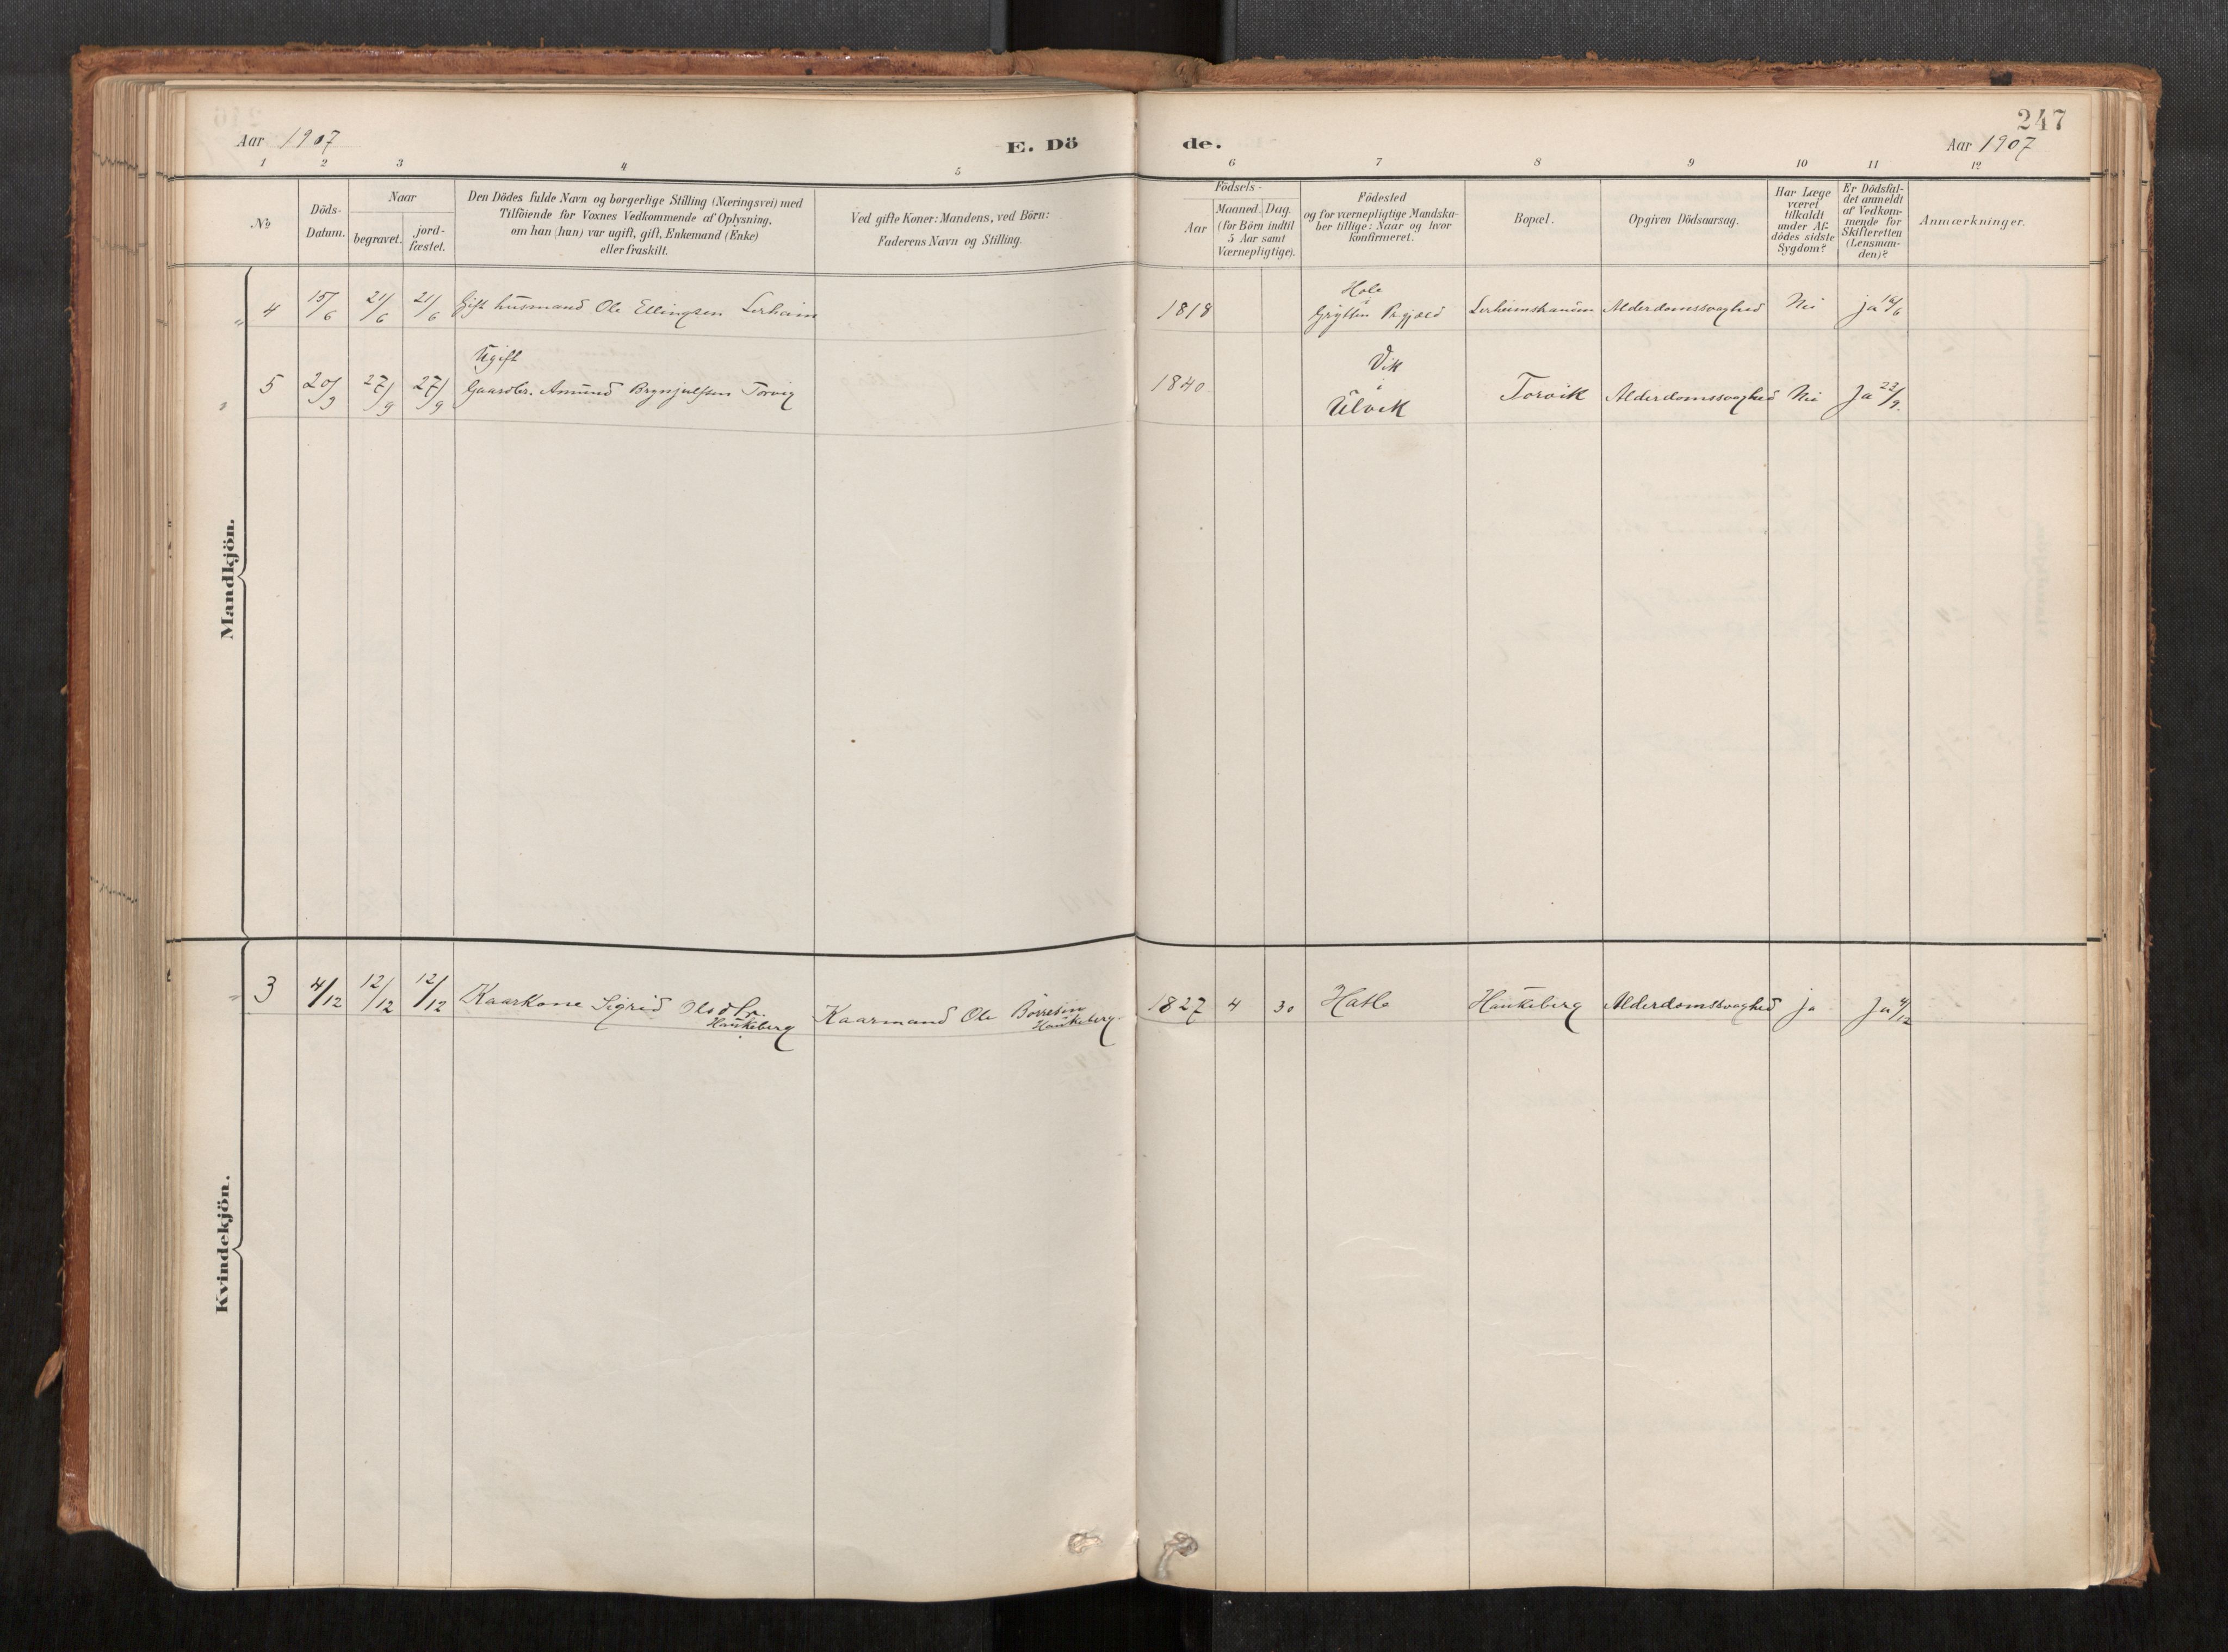 247
Aar 1907
E. Dö
de.
Aar 1907
1 2 3 4 5 6 7 8 9 10 11 12
No
Döds-
Datum.
Naar
begravet.
jord-
fæstet.
Den Dödes fulde Navn og borgerlige Stilling (Næringsvei) med
Tilföiende for Voxnes Vedkommende af Oplysning,
om han (hun) var ugift, gift, Enkemand (Enke)
eller fraskilt.
Ved gifte Koner: Mandens, ved Börn:
Faderens Navn og Stilling.
Födsels-
Aar
Maaned. Dag.
(for Börn indtil
5 Aar samt
Værnepligtige).
Födested
og for værnepligtige Mandska-
ber tillige: Naar og hvor
konfirmeret.
Bopæl.
Opgiven Dödsaarsag.
Har Læge
været
tilkaldt
under Af-
dödes sidste
Sygdom?
Er Dödsfal-
det anmeldt
af Vedkom-
mende for
Skifteretten
(Lensman-
den)?
Anmærkninger.
Mandkjön.
4 15/6 21/6 21/6 Gift husmand Ole Ellingsen Lerheim 1818
Hole
i
Grytten Prgjæld
Lerheimshaugen Alderdomssvaghed Nei ja 18/6
Ugift
5 20/9 27/9 27/9 Gaardbr. Amund Brynjulfsen Torvig 1840
Vik
i
Ulvik
Torvik Alderdomssvaghed Nei Ja 23/9.
Kvindekjön.
3 4/12 12/12 12/12 Kaarkone Sigrid
Haukeberg
Kaarmand Ole Börresen
Haukeberg.
1827 4 30 Hatle Haukeberg Alderdomssvaghed ja Ja 4/12